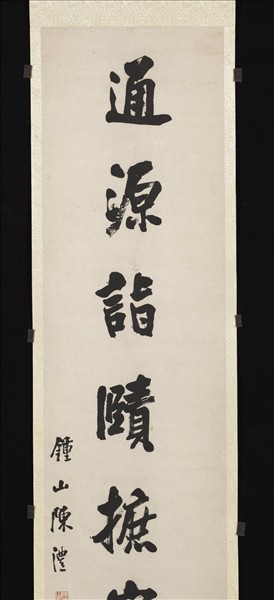 通源詣賾摭
鍾山陳澧